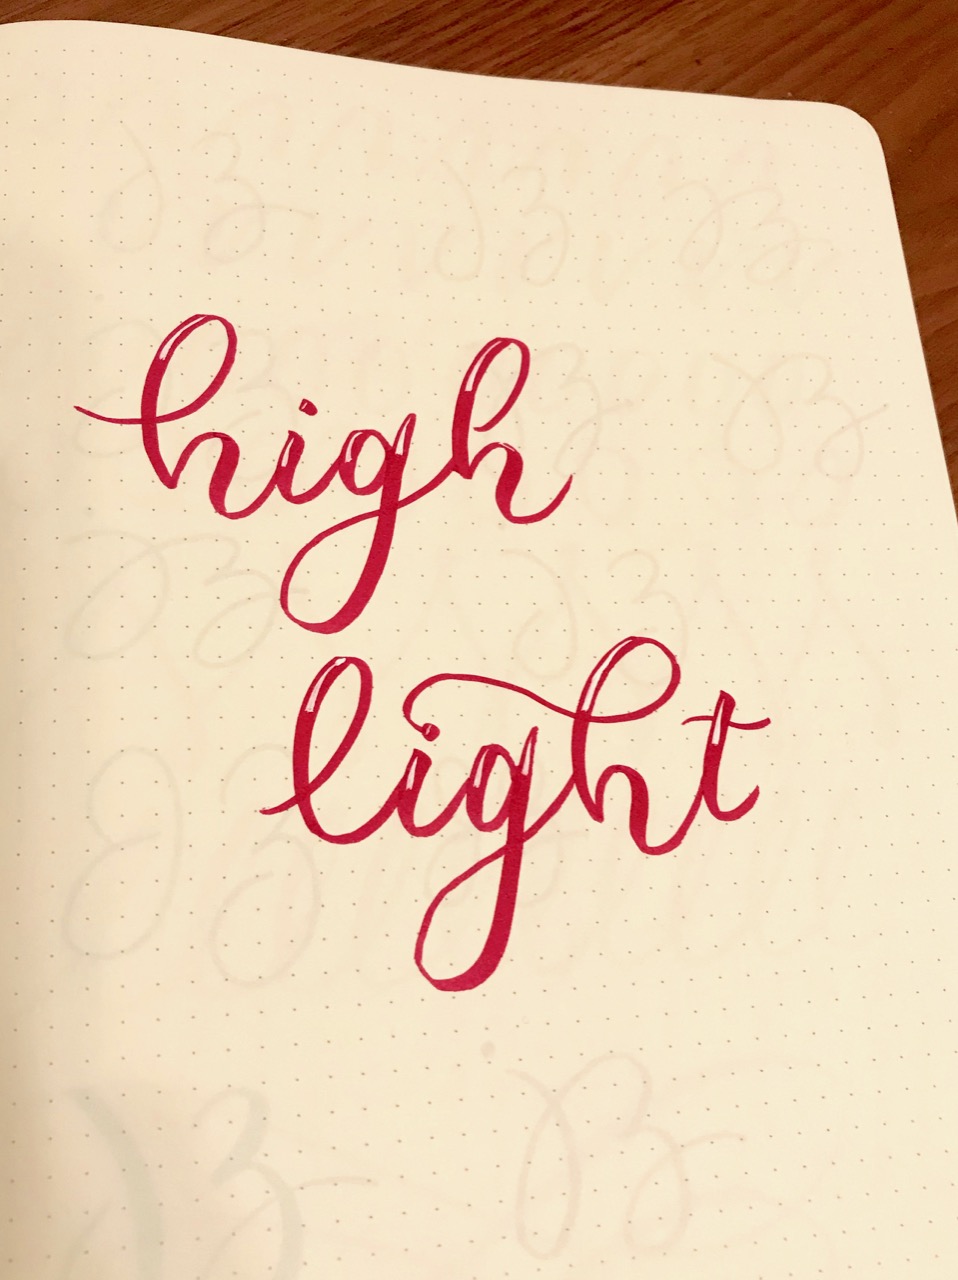 high
light